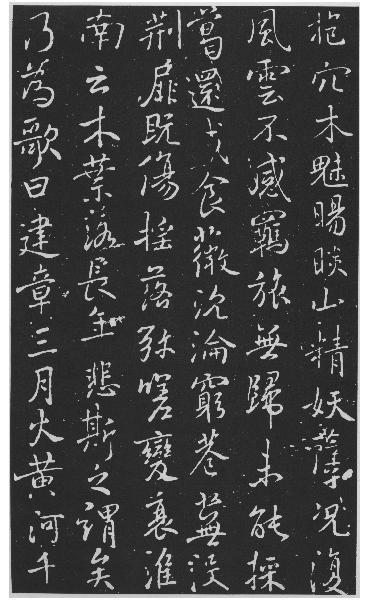 抱穴木魅睗睒山精妖孽況復
風雲不感羈旅無歸未能採
葛還成食薇沈淪窮巷蕪没
荊扉既傷搖落弥嗟變衰淮
南云木葉落長年悲斯之謂矣
乃為歌曰建章三月火黃河千